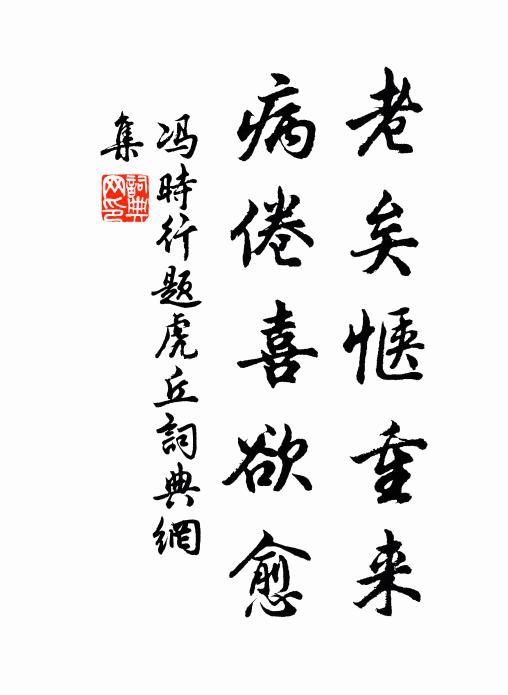 老矣惬重来
病倦喜欲愈
冯時行题虎丘詞典網
集
詞典网印